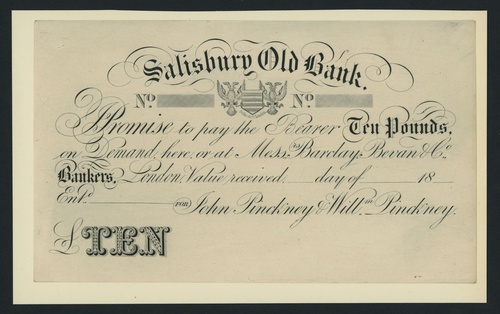 Salisbury Old Bank.
No. No.
I Promise to pay the Bearer Ten Pounds,
on Demand, here, or at Messrs. Barclay, Bevan & Co.
Bankers, London, Value received ___ day of ___ 18___
Entd. ___ FOR John Pinckney & Willm. Pinckney.
£TEN